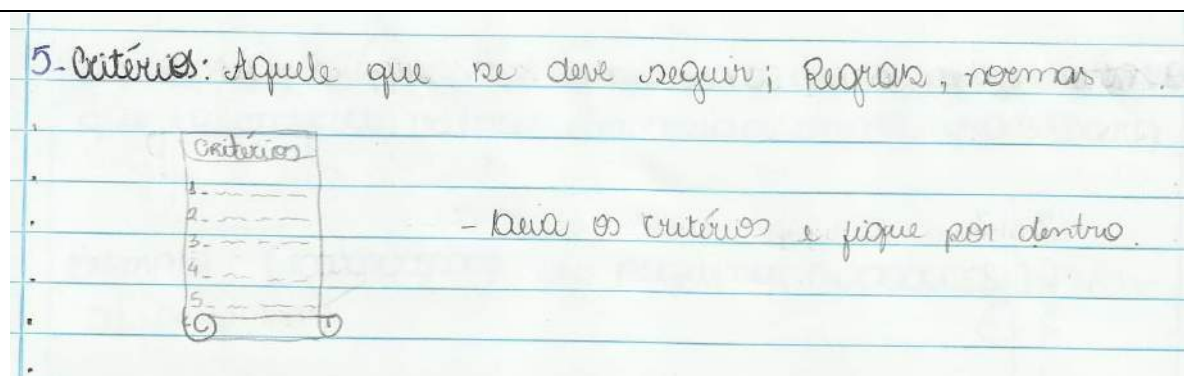 5- Critérios: Aquele que se deve seguir; Regras, normas.
Critérios
1-
2-
3-
4-
5-
- Leia os critérios e fique por dentro.